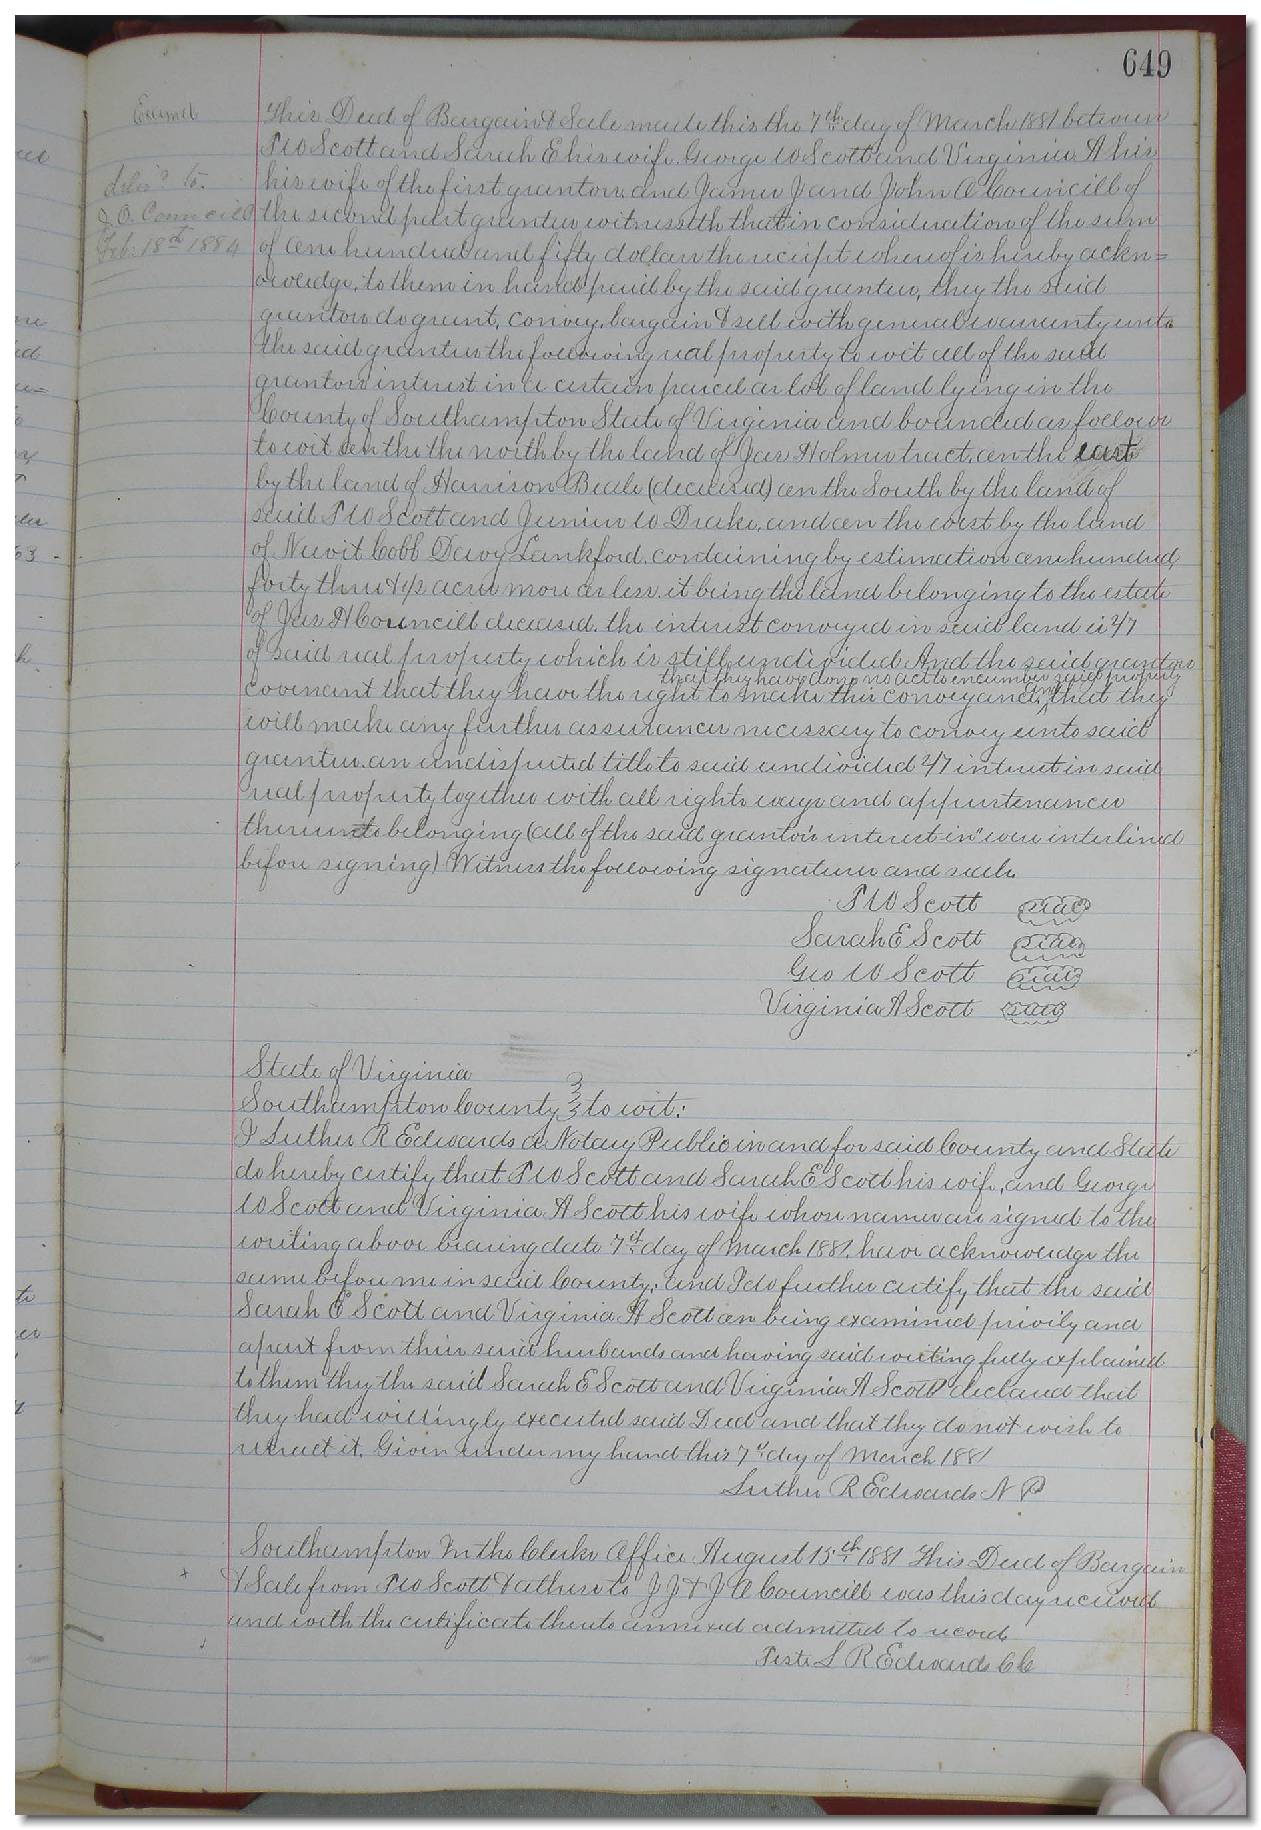 649
Examd
deliv'd to.
J. A. Councill
Feb. 18th 1884
This Deed of Bargain & Sale made this the 7th day of March 1881 between
P W Scott and Sarah E his wife. George W Scott and Virginia A his
his wife of the first grantors and James J and John A Councill of
the second part grantees witnesseth that in consideration of the sum
of one hundred and fifty dollars the receipt whereof is hereby ackn=
owledge, to them in hand paid by the said grantees, they the said
grantors do grant, convey, bargain & sell with general warranty unto
the said grantees the following real property to wit all of the said
grantors interest in a certain parcel or lot of land lying in the
County of Southampton State of Virginia and bounded as follows
to wit On the the north by the land of Jas Holmes tract, on the east
by the land of Harrison Beale (deceased) on the South by the land of
said P W Scott and Junius W Drake, and on the west by the land
of Newit Cobb Davy Lankford, containing by estimation one hundred
forty three & 1/2 acres more or less, it being the land belonging to the estate
of Jas H Councill deceased. the interest conveyed in said land is 2/7
of said real property which is still undivided And the said grantors
that they have done no act to encumber said property
covenant that they have the right to make this conveyance, and that they
will make any further assurances necessary to convey unto said
grantees an undisputed title to said undivided 2/7 interest in said
real property together with all rights ways and appurtenances
thereunto belonging (all of the said grantors interest in" were interlined
before signing) Witness the following signatures and seals
P W Scott seal
Sarah E Scott seal
Geo W Scott seal
Virginia A Scott seal
State of Virginia
Southampton County to wit:
I Luther R Edwards a Notary Public in and for said County and State
do hereby certify that P W Scott and Sarah E Scott his wife, and George
W Scott and Virginia A Scott his wife whose names are signed to the
writing above bearing date 7th day of March 1881, have acknowledge the
same before me in said County, and I do further certify that the said
Sarah E Scott and Virginia A Scott on being examined privily and
apart from their said husbands and having said writing fully explained
to them they the said Sarah E Scott and Virginia A Scott declared that
they had willingly executed said Deed and that they do not wish to
retract it. Given under my hand this 7th day of March 1881
Luther R Edwards N P
Southampton In the Clerks Office August 15th 1881 This Deed of Bargain
& Sale from P W Scott & others to J J & J A Councill was this day received
and with the certificate thereto annexed admitted to record
Teste L R Edwards CC